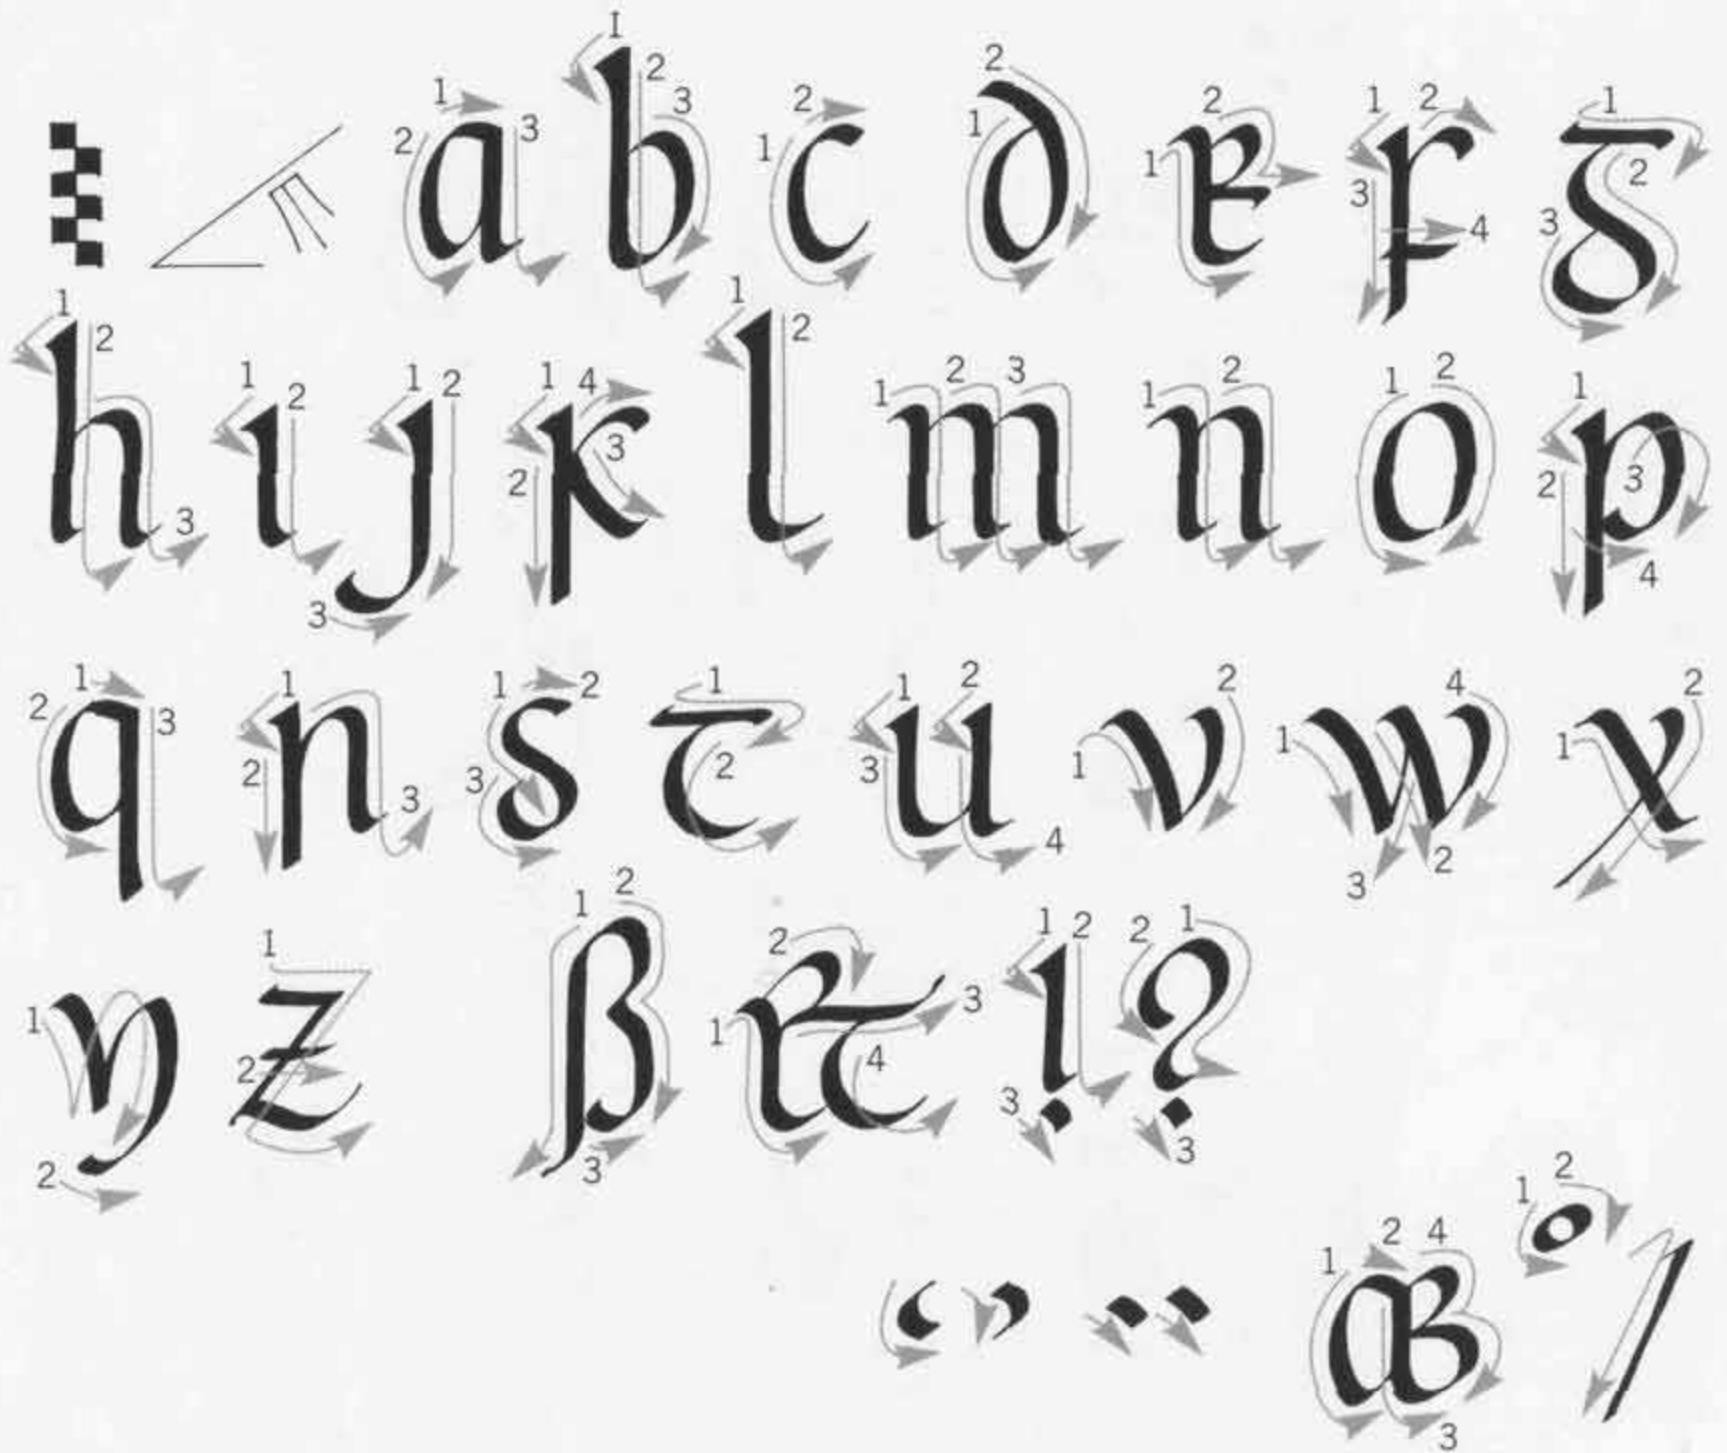 a b c d e f g
h ı j k l m n o p
q r s t u v w x
y z ß & ! ?
‘ ’ ¨ æ °/